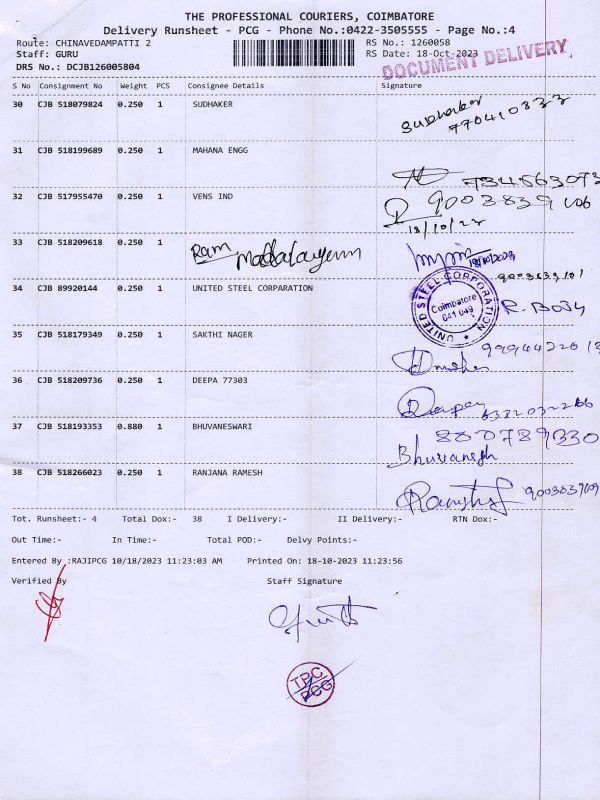 THE PROFESSIONAL COURIERS, COIMBATORE
Delivery Runsheet - PCG - Phone No.:0422-3505555 - Page No.:4
Route: CHINAVEDAMPATTI 2 RS No.: 1260058
Staff: GURU RS Date: 18-Oct-2023
DOCUMENT DELIVERY
DRS No.: DCJB126005804
S No Consignment No Weight PCS Consignee Details Signature
30 CJB 518079824 0.250 1 SUDHAKER
Sudhaker
31 CJB 518199689 0.250 1 MAHANA ENGG
32 CJB 517955470 0.250 1 VENS IND
9003839106
18/10/23
33 CJB 518209618 0.250 1 Ram
18/10/2023
34 CJB 89920144 0.250 1 UNITED STEEL CORPARATION
UNITED STEEL CORPORATION
Coimbatore
641 049
35 CJB 518179349 0.250 1 SAKTHI NAGER
36 CJB 518209736 0.250 1 DEEPA 77303
37 CJB 518193353 0.880 1 BHUVANESWARI
8807789330
Bhuvanesh
38 CJB 518266023 0.250 1 RANJANA RAMESH
Tot. Runsheet:- 4 Total Dox:- 38 I Delivery:- II Delivery:- RTN Dox:-
Out Time:- In Time:- Total POD:- Delvy Points:-
Entered By :RAJIPCG 10/18/2023 11:23:03 AM Printed On: 18-10-2023 11:23:56
Verified By Staff Signature
TPC
PCG